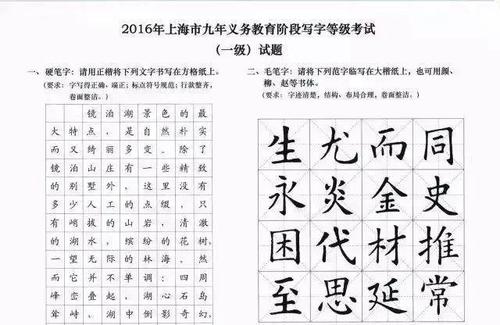 2016年上海市九年义务教育阶段写字等级考试
（一级）试题
一、硬笔字：请用正楷将下列文字书写在方格纸上。
（要求：字写得正确、端正；标点符号规范；行款整齐，
卷面整洁。）
镜泊湖景色的最
大特点，是自然朴实
而又绮丽多变。除了
镜泊山庄有一些精致
的别墅外，这里没有
多少人工的点缀，只
有峭拔的山岩，清澈
的湖水，缤纷的花树，
一望无际的林海。然
而它并不单调：四周
峰峦叠起，湖心石岛
耸峙，湖中倒影奇幻，
二、毛笔字：请将下列范字临写在大楷纸上，也可用颜、
柳、赵等书体。
（要求：字迹清楚，结构、布局合理，卷面整洁。）
生尤而同
永炎金史
困代材推
至思延常